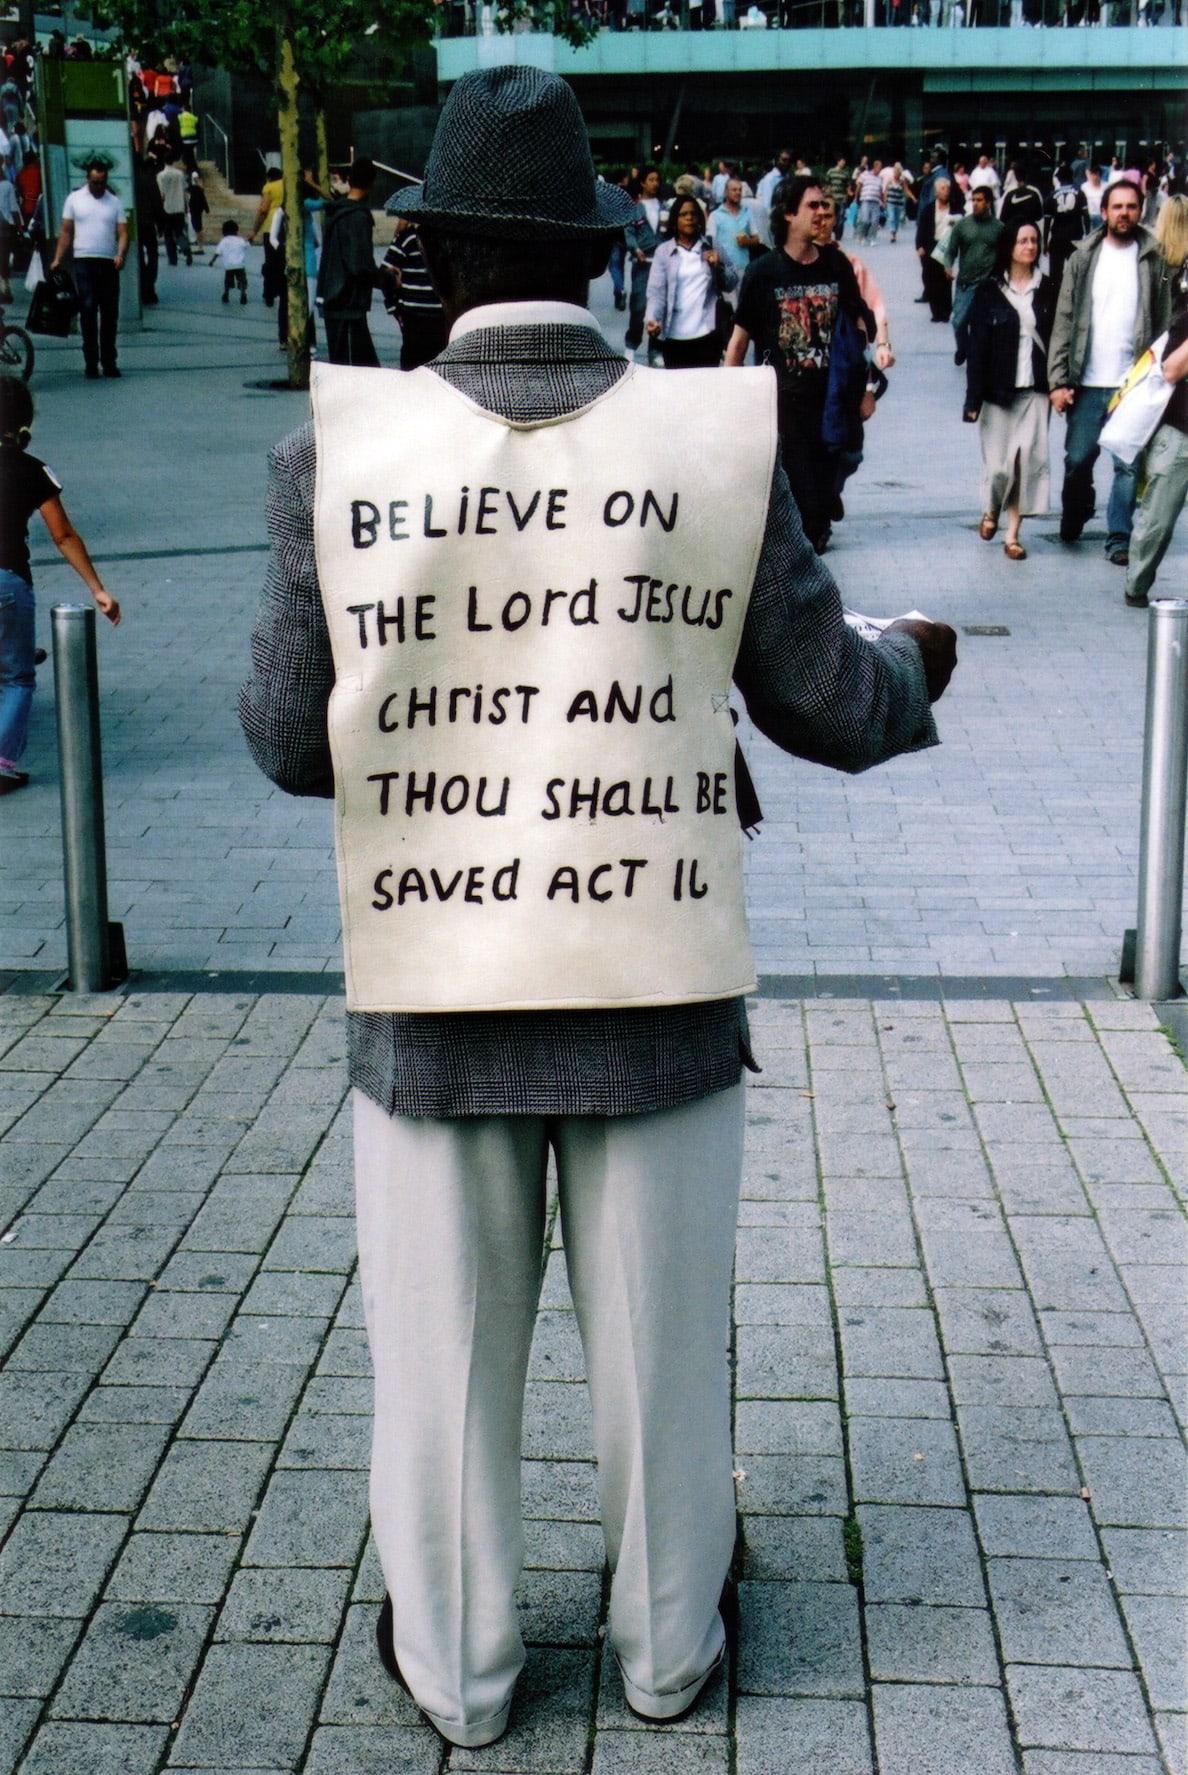 BELiEVE ON
THE Lord JESUS
CHriST ANd
THOU SHaLL BE
SAVEd ACT 16